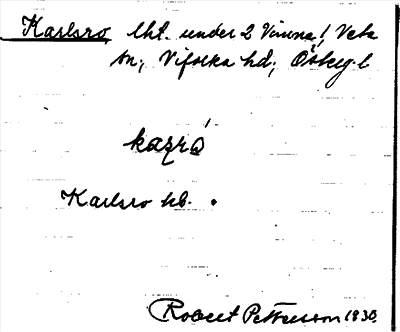 Karlsro lht. under 2 Vinna! Veta
sn; Vifolka hd; Östergötl
kaʐró
Karlsro hb.
Robert Pettersson 1930